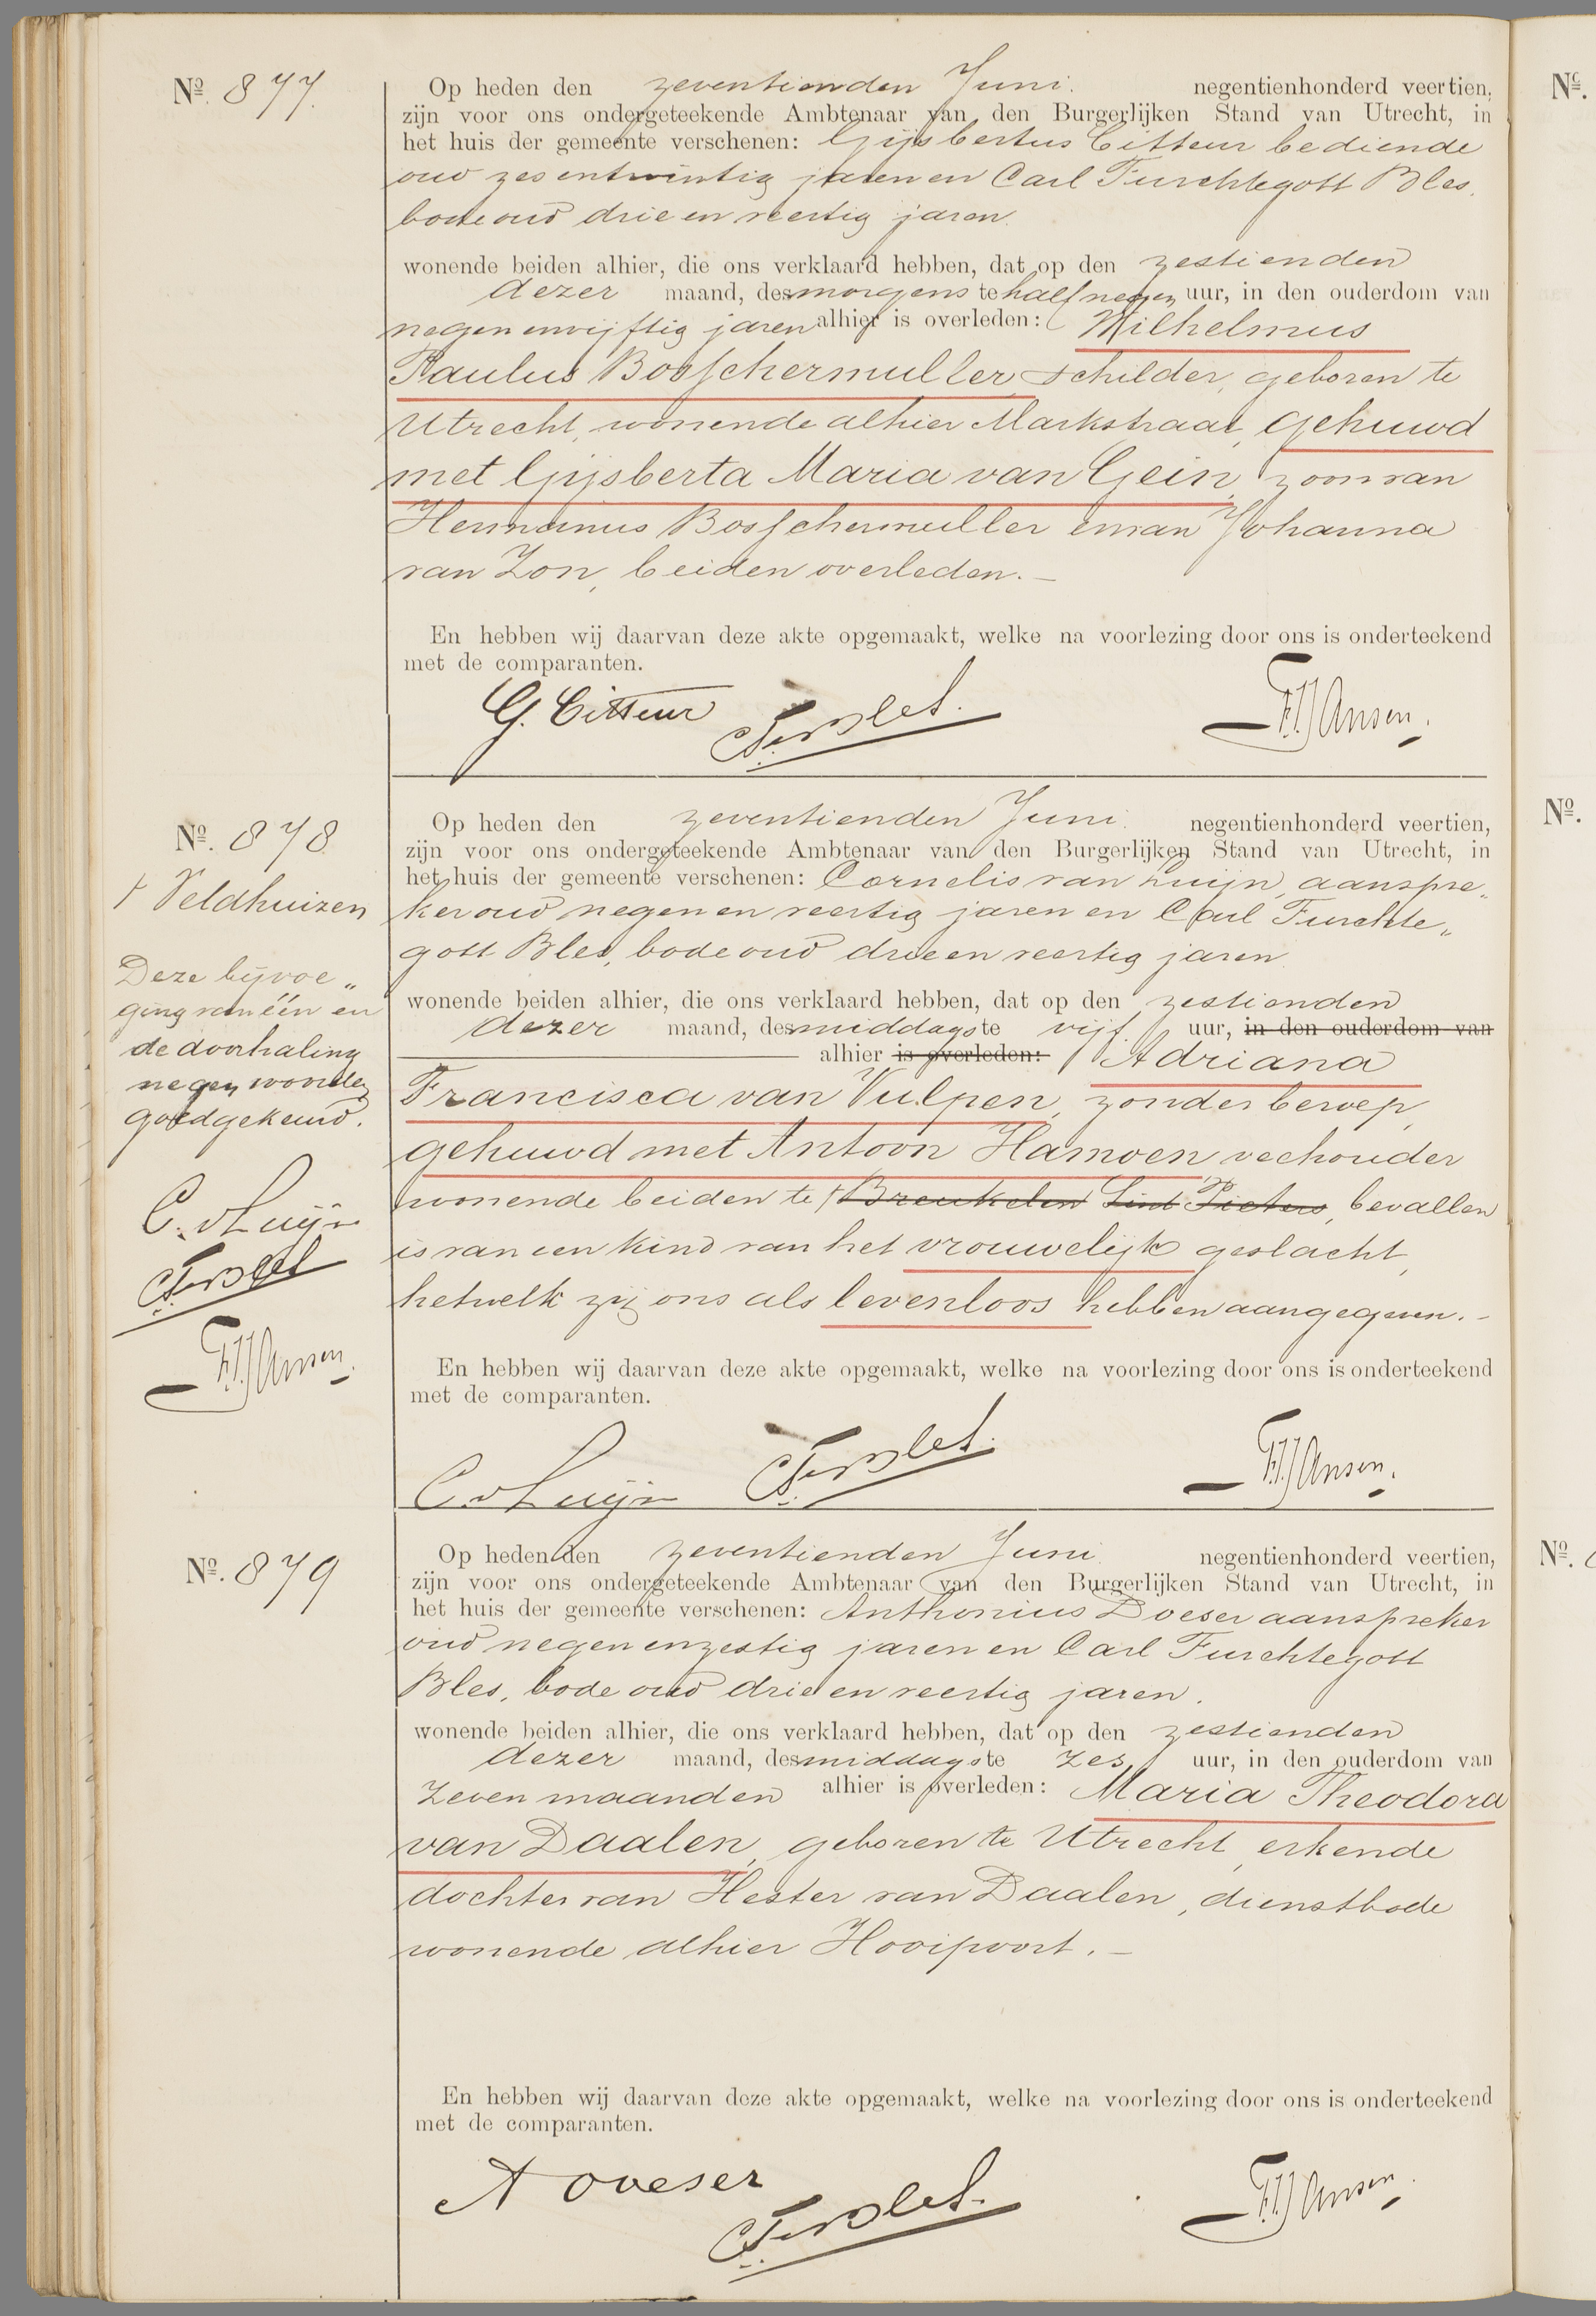 Nº. 877.
Op heden den zeventienden Juni. negentienhonderd veertien,
zijn voor ons ondergeteekende Ambtenaar van den Burgerlijken Stand van Utrecht, in
het huis der gemeente verschenen: Gijsbertus Citteur bediende
oud zesentwintig jaren en Carl Furchtegott Bles,
bode oud drie en veertig jaren.
wonende beiden alhier, die ons verklaard hebben, dat op den zestienden
dezer maand, des morgens te half negen uur, in den ouderdom van
negen en vijftig jaren alhier is overleden: Wilhelmus
Paulus Bosschermuller, schilder, geboren te
Utrecht, wonende alhier Markstraat, gehuwd
met Gijsberta Maria van Gein, zoon van
Hermanus Bosschermuller en van Johanna
van Zon, beiden overleden. —
En hebben wij daarvan deze akte opgemaakt, welke na voorlezing door ons is onderteekend
met de comparanten.
G. Citteur CFBles. F.J. Jansen.
Nº. 878.
Op heden den zeventienden Juni. negentienhonderd veertien,
zijn voor ons ondergeteekende Ambtenaar van den Burgerlijken Stand van Utrecht, in
het huis der gemeente verschenen: Cornelis van Luijn, aanspre„
ker oud negen en veertig jaren en Carl Furchte„
gott Bles, bode oud drie en veertig jaren
wonende beiden alhier, die ons verklaard hebben, dat op den zestienden
dezer maand, des middags te vijf uur, in den ouderdom van
alhier is overleden: Adriana
Francisca van Vulpen, zonder beroep,
gehuwd met Antoon Hamoen veehouder
wonende beiden te Breukelen Sint Pieters, bevallen
is van een kind van het vrouwelijk geslacht,
hetwelk zij ons als levenloos hebben aangegeven. –
En hebben wij daarvan deze akte opgemaakt, welke na voorlezing door ons is onderteekend
met de comparanten.
C. v Luijn CFBles. F.J. Jansen.
Veldhuizen
Deze bijvoe„
ging van één en
de doorhaling
negen woorden
goedgekeurd.
C. v Luijn
CFBles
F.J. Jansen.
Nº. 879
Op heden den zeventienden Juni negentienhonderd veertien,
zijn voor ons ondergeteekende Ambtenaar van den Burgerlijken Stand van Utrecht, in
het huis der gemeente verschenen: Anthonius Doeser aanspreker
oud negen en zestig jaren en Carl Furchtegott
Bles, bode oud drie en veertig jaren.
wonende beiden alhier, die ons verklaard hebben, dat op den zestienden
dezer maand, des middags te zes uur, in den ouderdom van
zeven maanden alhier is overleden: Maria Theodora
van Daalen, geboren te Utrecht, erkende
dochter van Hester van Daalen, dienstbode
wonende alhier Hooipoort. —
En hebben wij daarvan deze akte opgemaakt, welke na voorlezing door ons is onderteekend
met de comparanten.
A Doeser CFBles. F.J. Jansen.
Nº.
Nº.
Nº.